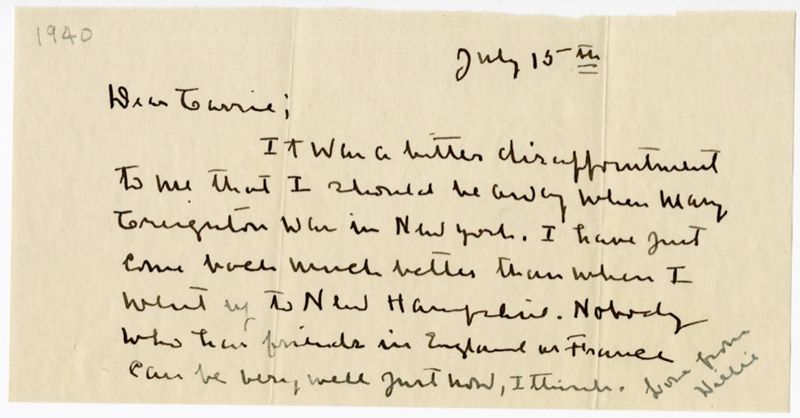 1940
July 15th
Dear Carrie;
It was a bitter disappointment
to me that I should be away when Mary
Creighton was in New York. I have just
come back much better than when I
went up to New Hampshire. Nobody
who has friends in England or France
can be very well just now, I think.
Love from
Nellie